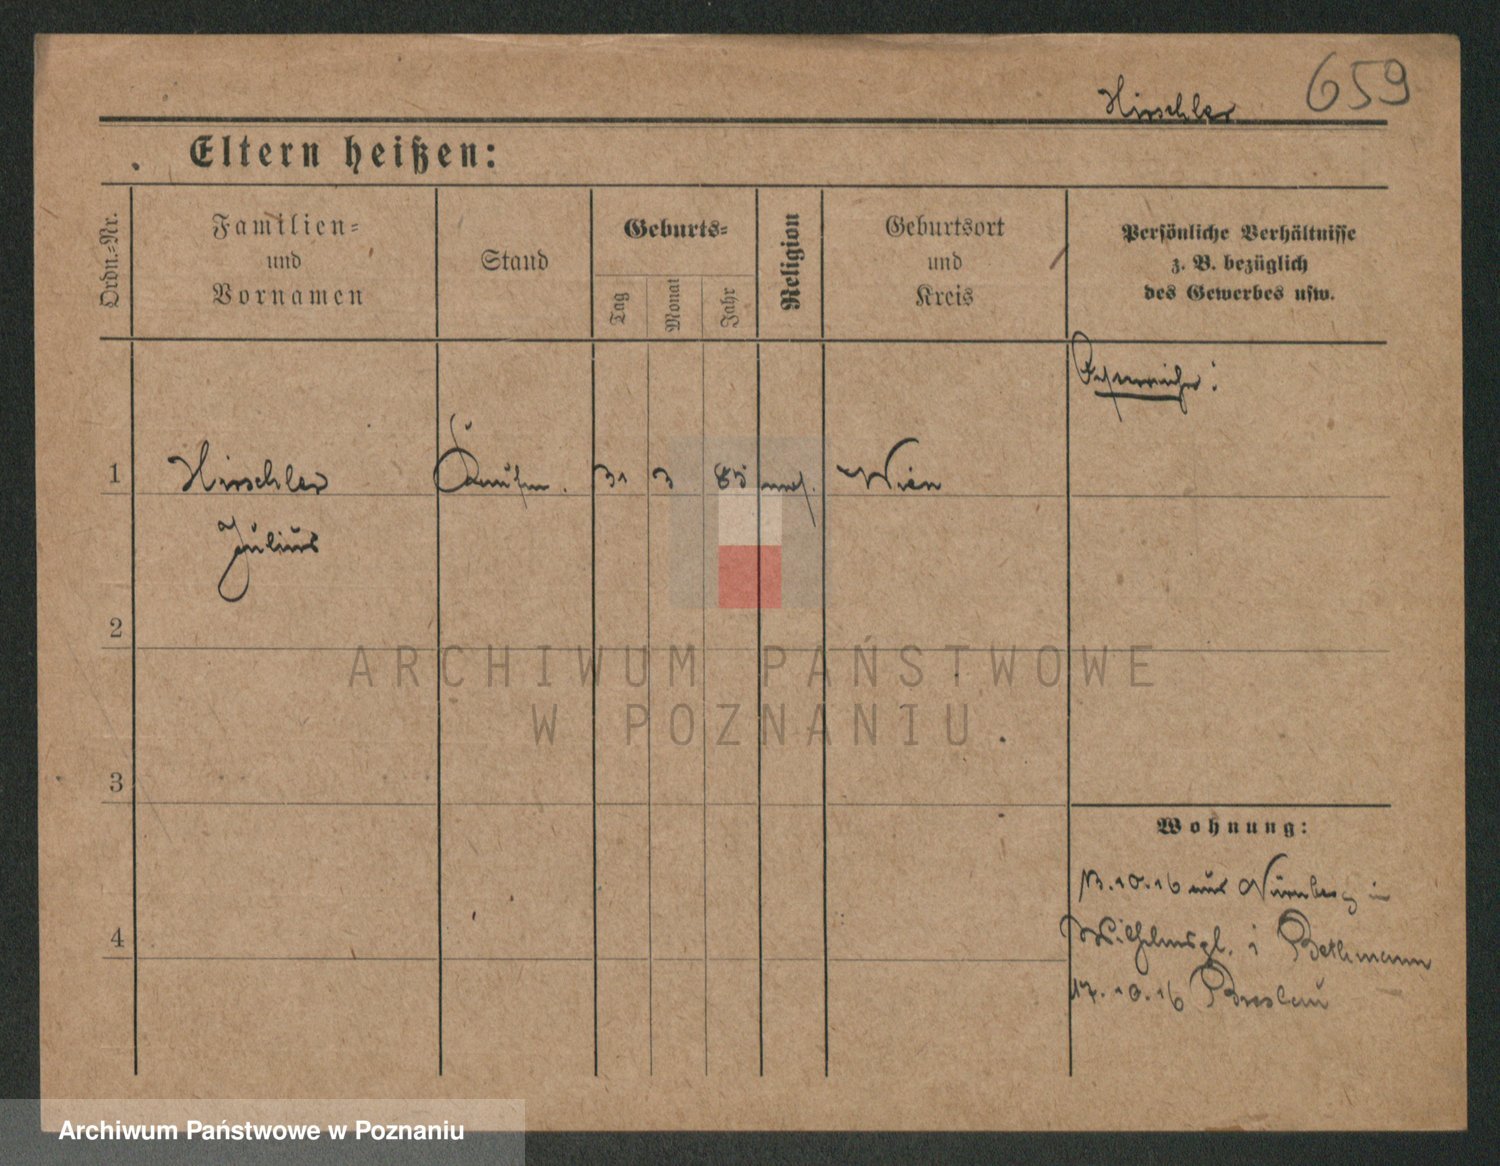 659
Hirschler
Eltern heißen:
Ordn.-Nr.
Familien-
und
Vornamen
Stand
Geburts-
Tag
Monat
Jahr
Religion
Geburtsort
und
Kreis
Persönliche Verhältnisse
z. B. bezüglich
des Gewerbes usw.
1
Hirschler
Julius
Kaufm.
31
3
85
Wien
2
3
4
Wohnung:
13.10.16 aus Nürnberg in
Wilhelmspl. Bethmann
17.10.16 Breslau
ARCHIWUM PAŃSTWOWE
W POZNANIU
Archiwum Państwowe w Poznaniu